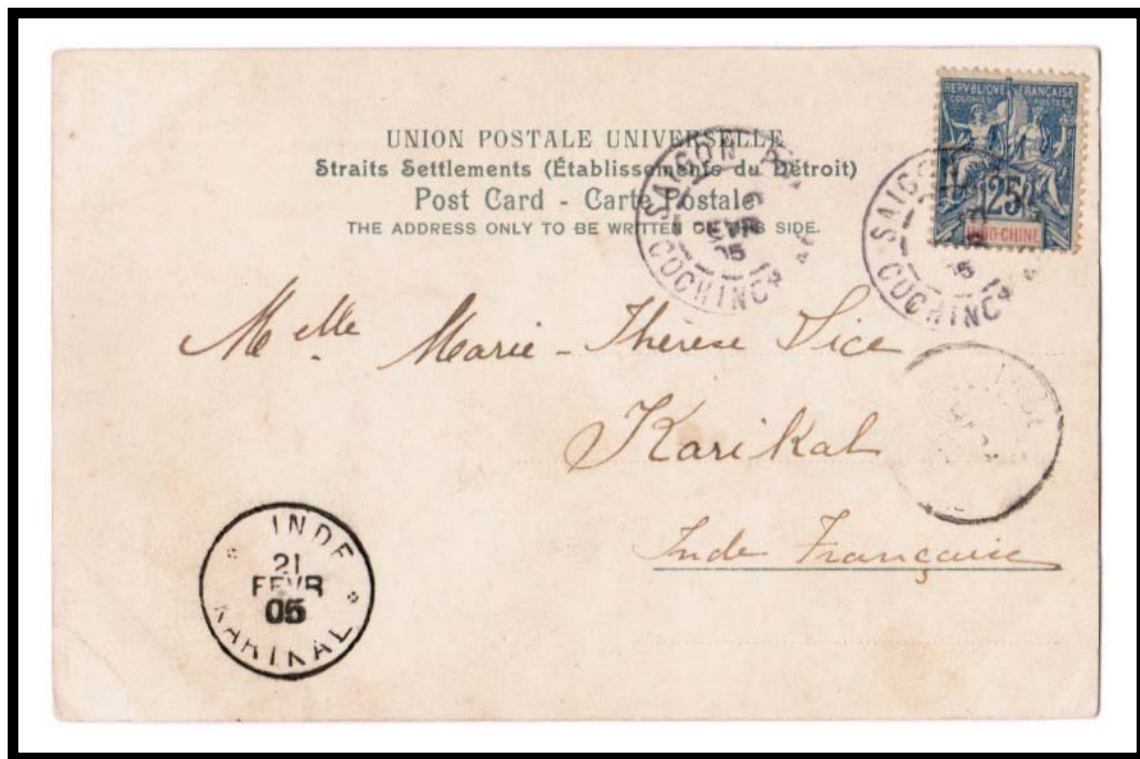 UNION POSTALE UNIVERSELLE
Straits Settlements (Établissements du Détroit)
Post Card - Carte Postale
THE ADDRESS ONLY TO BE WRITTEN ON THIS SIDE.
REPVBLIQVE FRANÇAISE
COLONIES POSTES
25
INDO-CHINE
SAIGON
05
COCHINC
SAIGO
COCHINC
Melle Marie-Thérèse Sice
Karikal
Inde Française
INDE
21
FEVR
05
KARIKAL